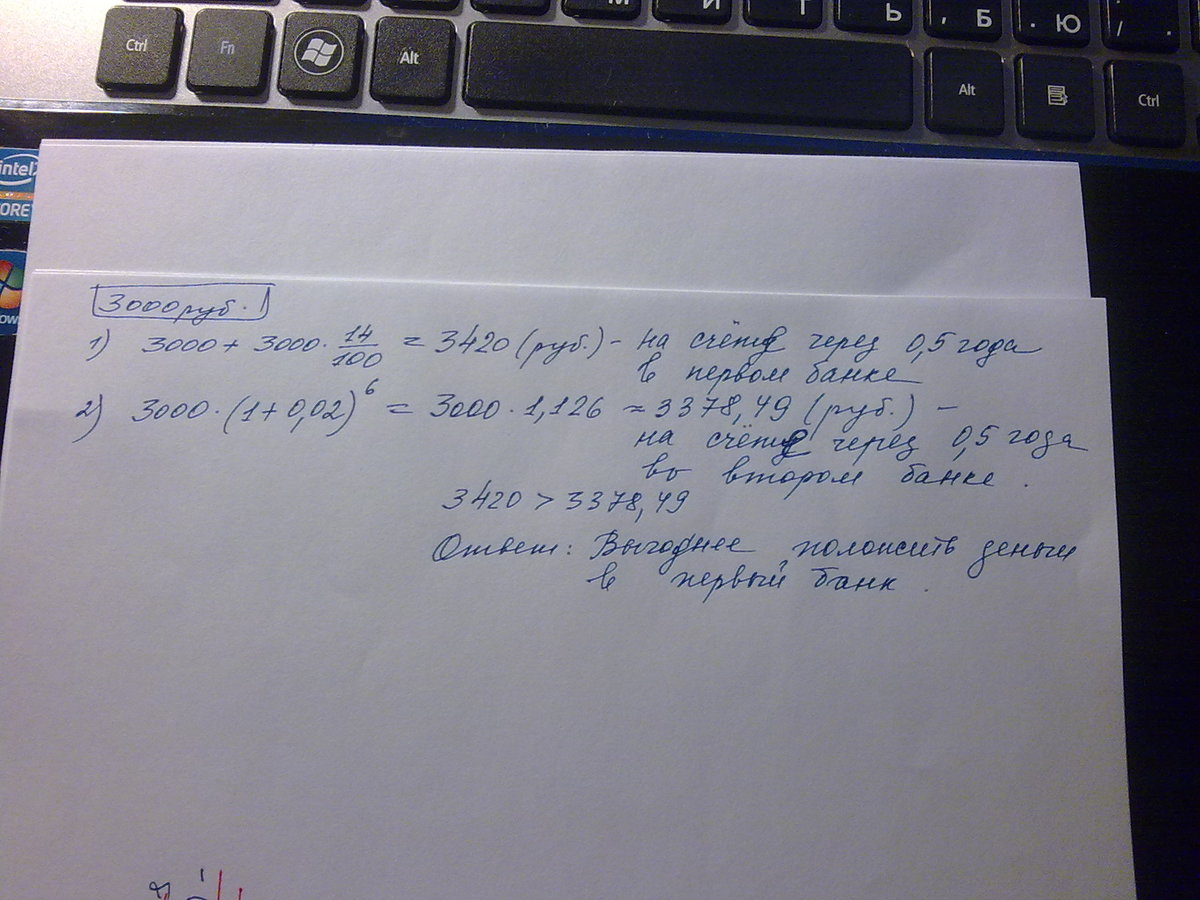 м и т ь , Б . Ю / .
Ctrl Fn Alt Alt Ctrl
intel
CORE
3000 руб.
1) 3000 + 3000 · 14/100 = 3420 (руб.) – на счёте через 0,5 года
в первом банке
2) 3000 · (1 + 0,02)^6 = 3000 · 1,126 ≈ 3378,49 (руб.) –
на счёте через 0,5 года
во втором банке.
3420 > 3378,49
Ответ: Выгоднее положить деньги
в первый банк.